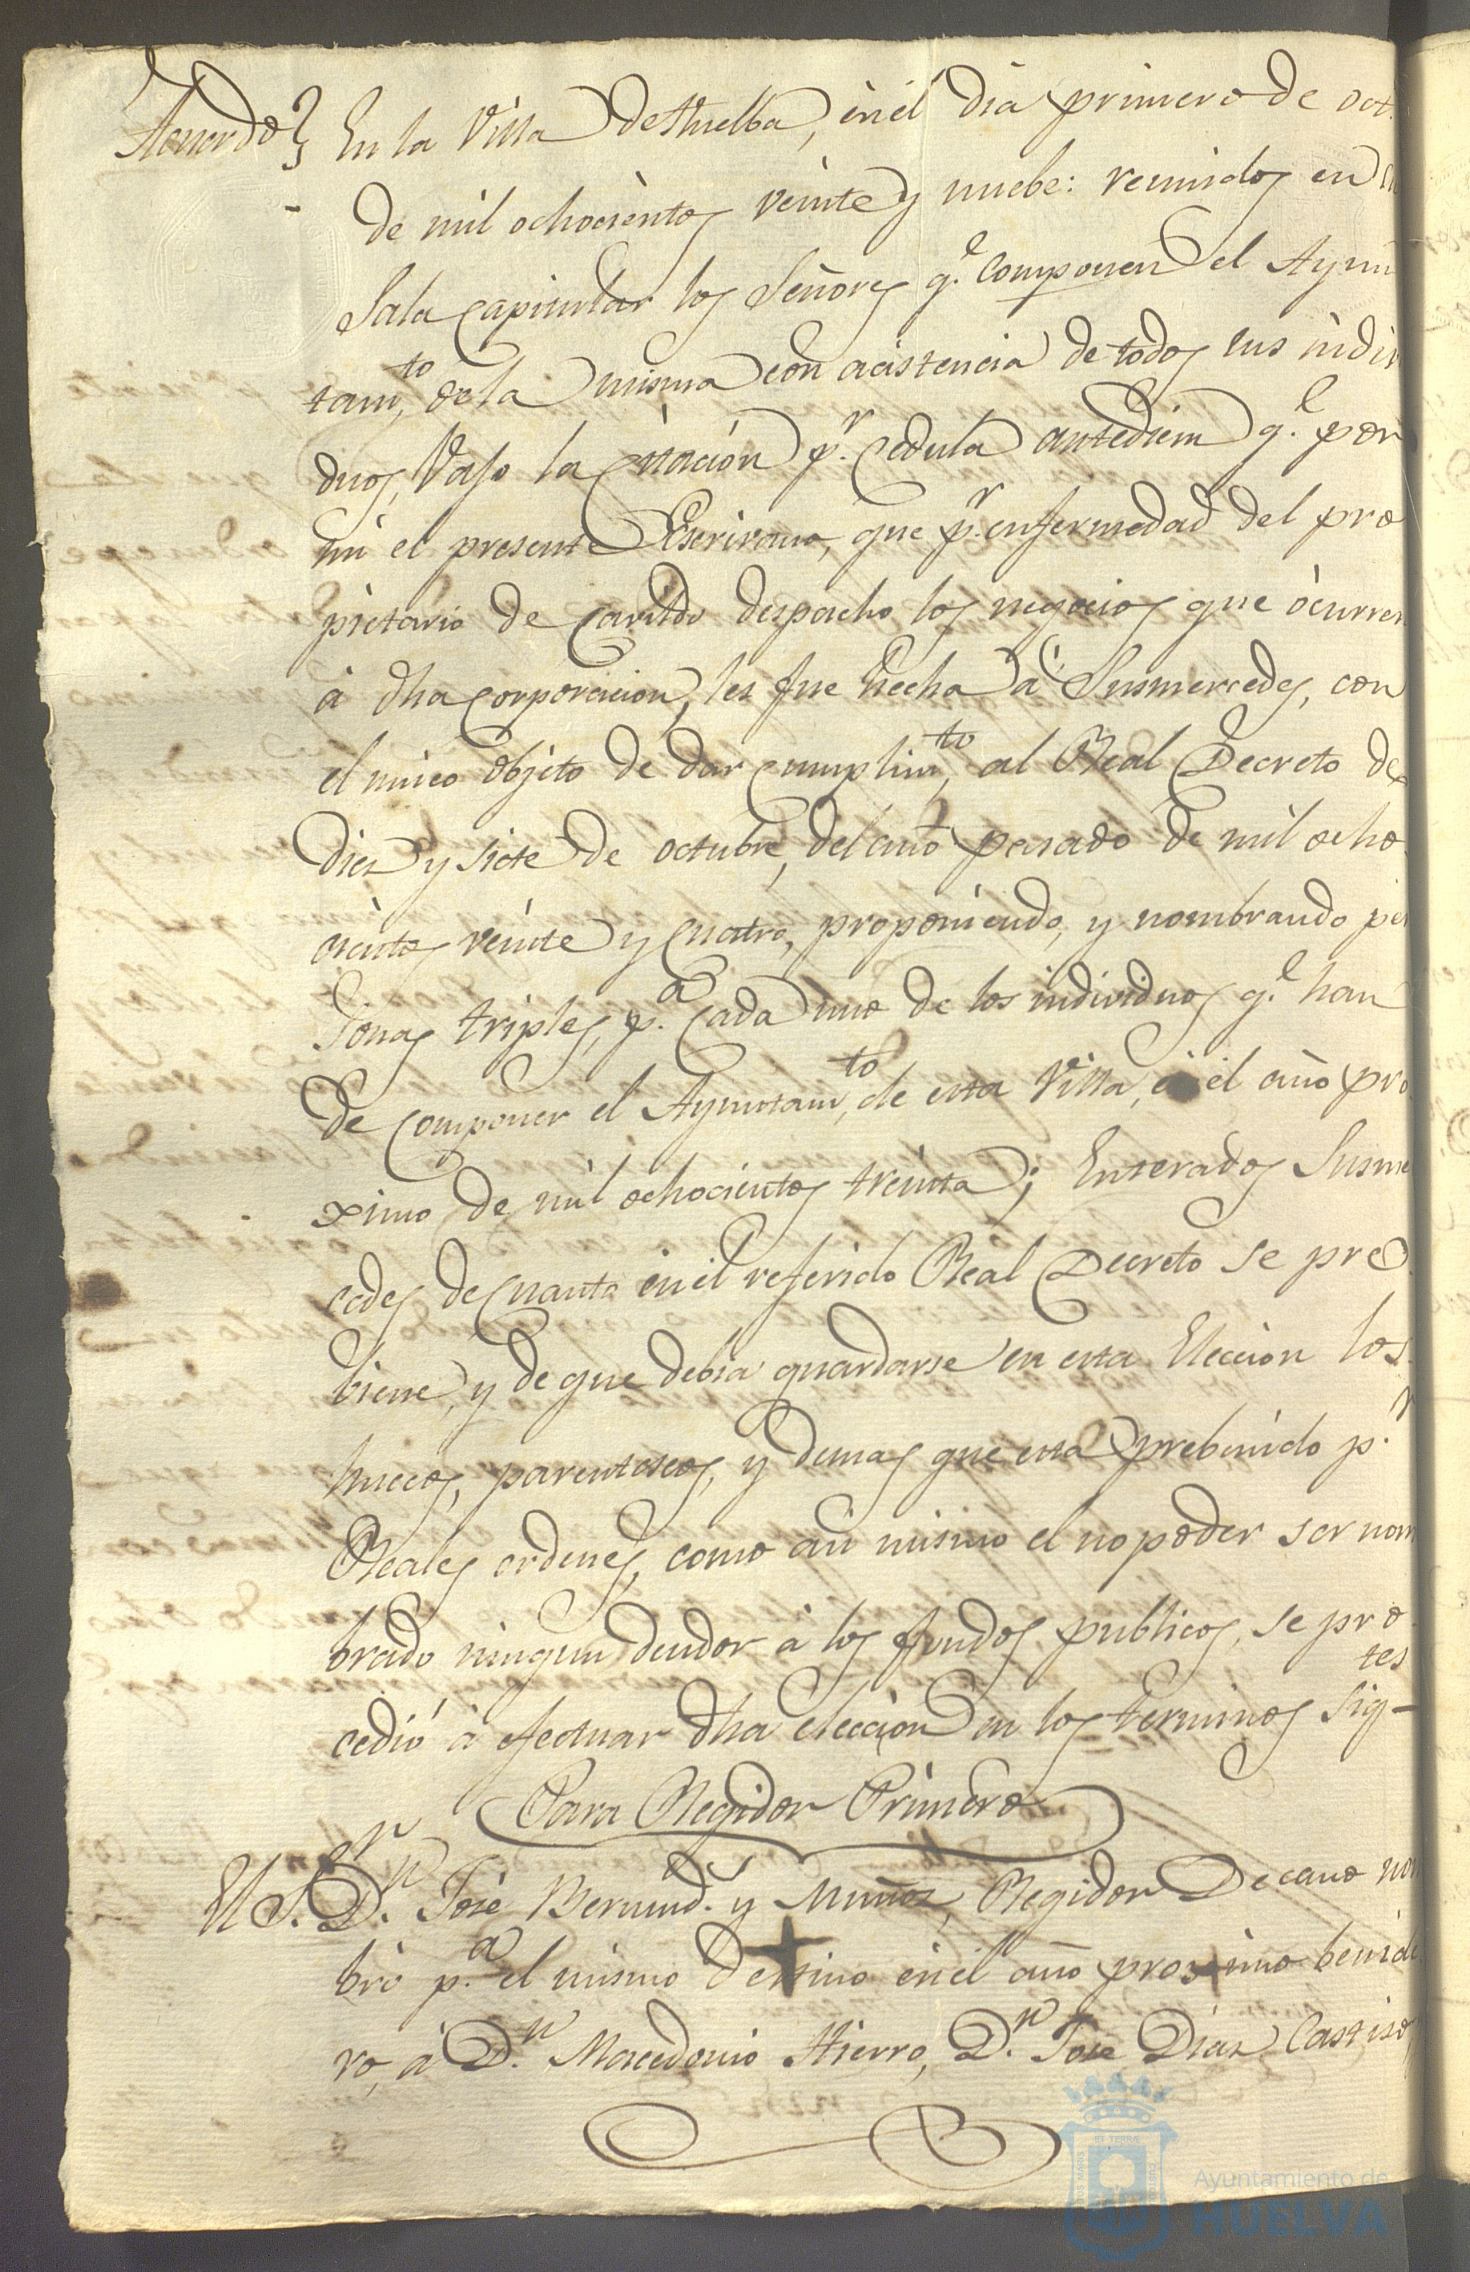 Acuerdo} En la Villa de Huelba, en el dia primero de oct.
de mil ochocientos veinte y nuebe: reunidos en
Sala Capitular los Señores q.e componen el Ayun
tam.to de la misma con acistencia de todos sus indivi
duos, Vajo la citacion p.r cedula antediem q.e por
mi el presente Escrivano, que p.r enfermedad del pro
pietario de Cavildo despacho los negocios que ócurren
á dha corporacion, les fue hecha á Susmercedes, con
el unico objeto de dar cumplim.to al Real Decreto de
Diez y siete de octubre, del año pasado de mil ocho
cientos veinte y cuatro, proponiendo, y nombrando per
sonas triples, p.a cada uno de los individuos q.e han
de componer el Ayuntam.to de esta Villa, en el año pro
ximo de mil ochocientos treinta; Enterados Susmer
cedes de cuanto en el referido Real Decreto se pre
biene, y de que debia guardarse en esta Eleccion los
huecos, parentescos, y demas que esta prebenido p.r
Reales ordenes, como asi mismo el no poder ser nom
brado ningun deudor á los fondos publicos, se pro
cedió á efectuar dha eleccion en los terminos sig-tes
Para Regidor Primero
El S.r D.n José Bermud.z y Muñoz, Regidor Decano nom
bró p.a el mismo destino en el año proximo benide
ro, á D.n Macedonio Hierro, D.n José Diaz Castizo,
ET TERRÆ
Ayuntamiento de
HUELVA